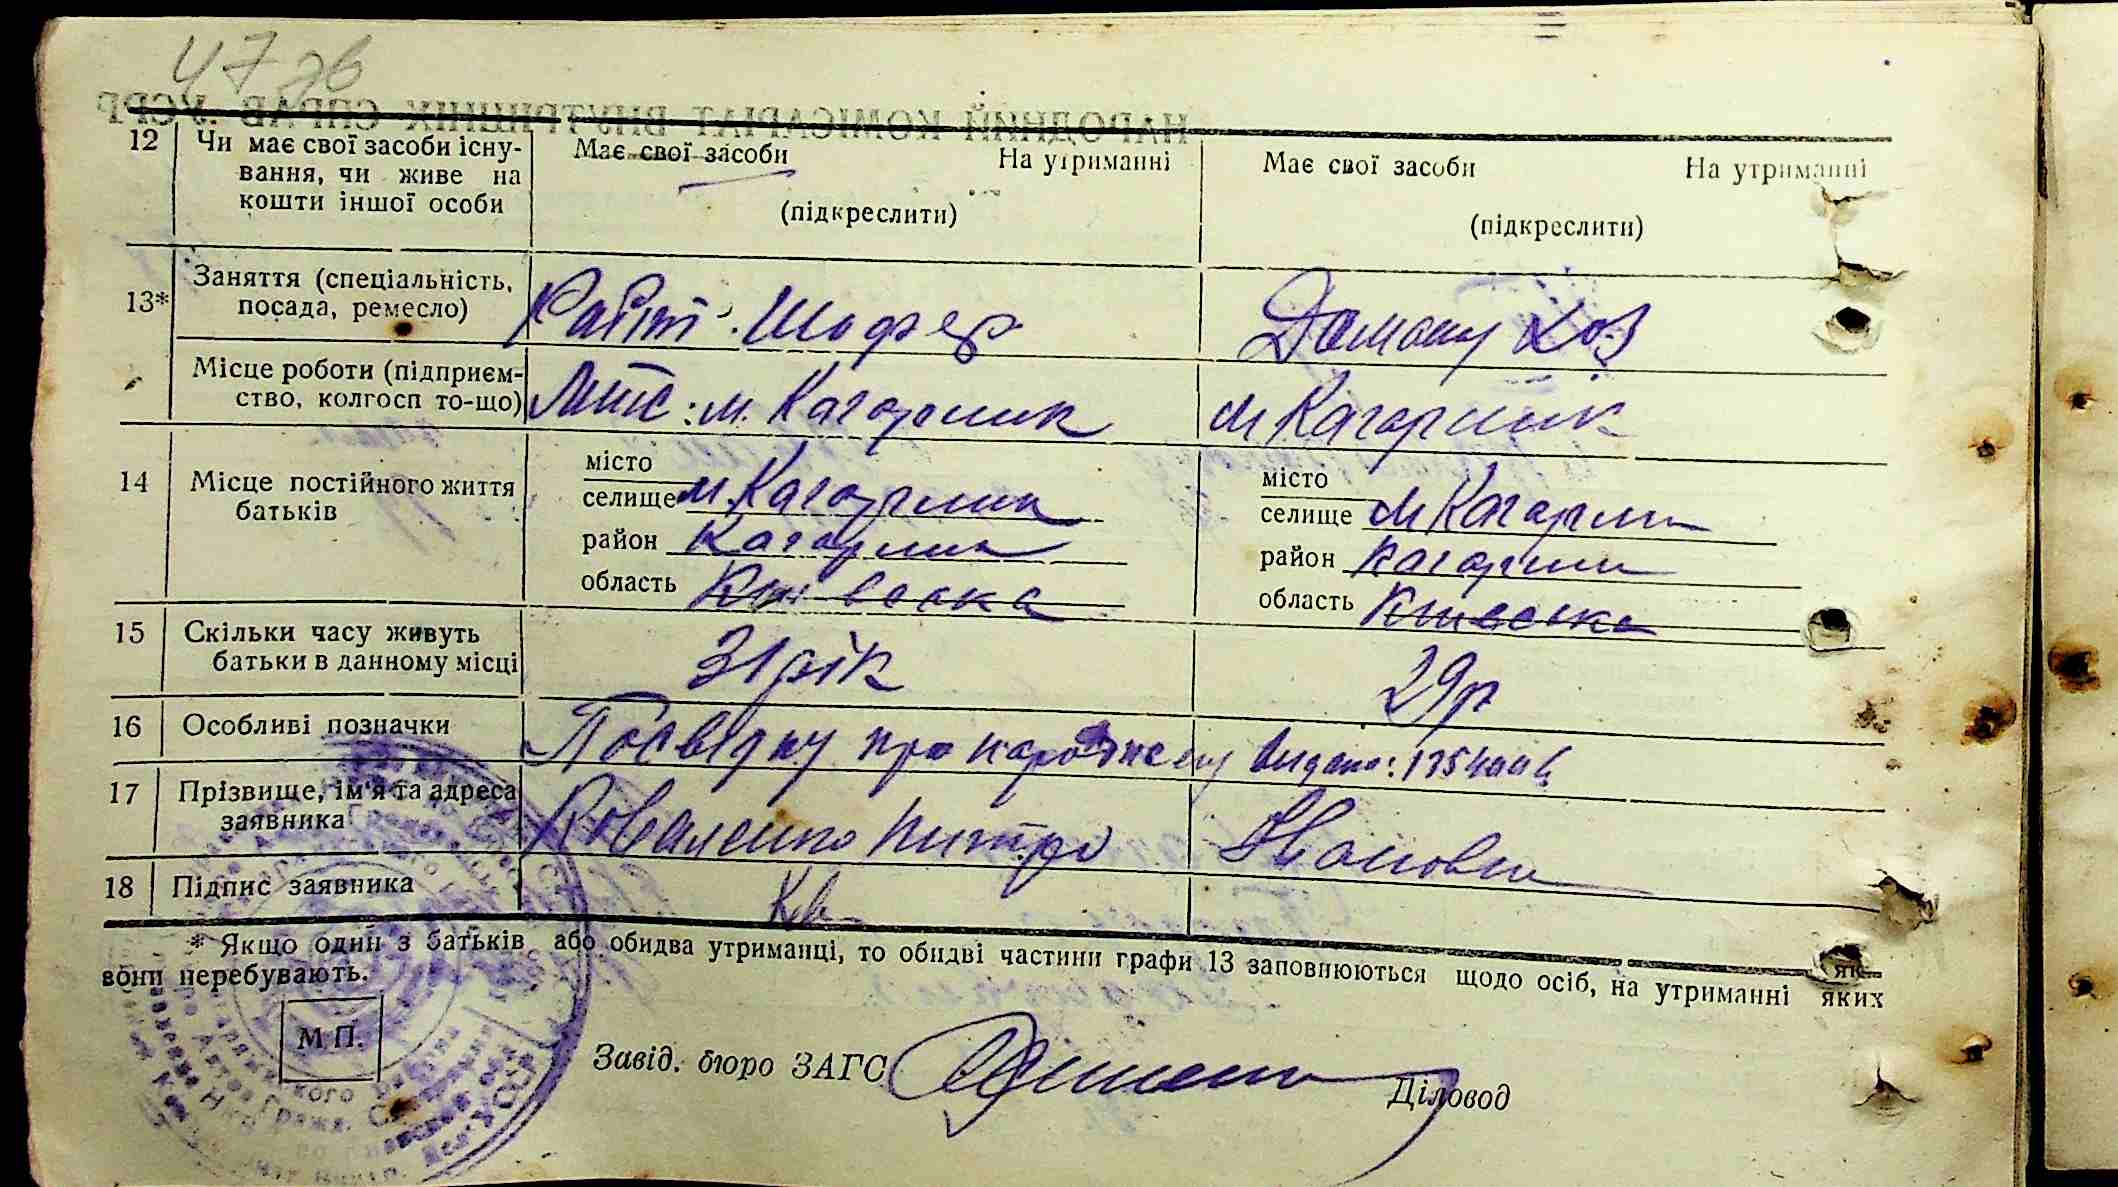 47 зв
НАРОДНИЙ КОМІСАРІАТ ВНУТРІШНІХ СПРАВ УСРР
12 Чи має свої засоби існу- Має свої засоби На утриманні Має свої засоби На утриманні
вання, чи живе на
кошти іншої особи (підкреслити) (підкреслити)
13* Заняття (спеціальність, посада, ремесло) Шофер Домашу Хоз
Місце роботи (підприєм- МТС: м. Кагарлик м Кагарлик
ство, колгосп то-що)
14 Місце постійного життя батьків
місто місто
селище м Кагарлик селище м Кагарлик
район Кагарлик район Кагарлик
область Київська область Київська
15 Скільки часу живуть 31 рік 29 р
батьки в данному місці
16 Особливі позначки Посвідку про народжену видано:
17 Прізвище, ім'я та адреса Коваленко Питро
заявника
18 Підпис заявника Кв
* Якщо один з батьків або обидва утриманці, то обидві частини графи 13 заповнюються щодо осіб, на утриманні яких
вони перебувають.
М П.
Завід. бюро ЗАГС Діловод